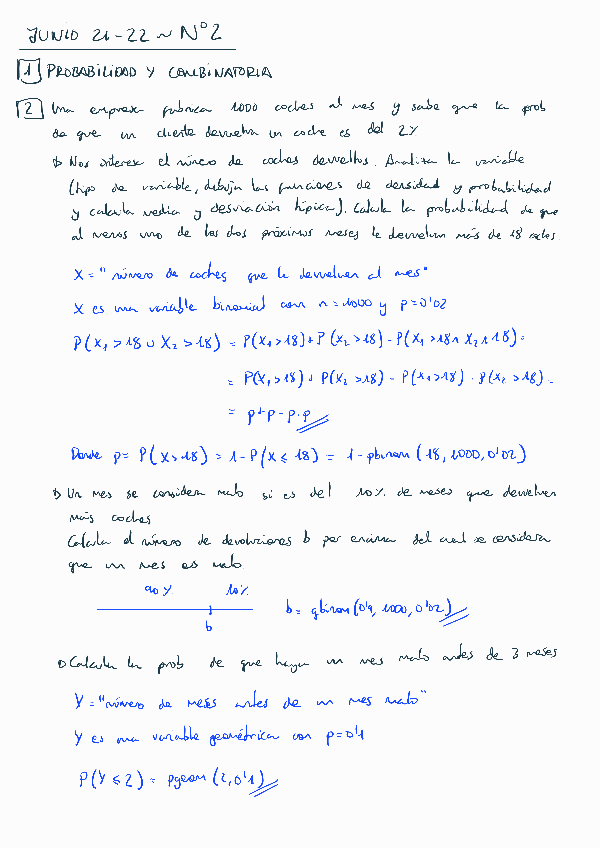 JUNIO 21-22 ~ Nº2
1 PROBABILIDAD Y COMBINATORIA
2 Una empresa fabrica 1000 coches al mes y sabe que la prob
de que un cliente devuelva un coche es del 2%
Nos interesa el número de coches devueltos. Analiza la variable
(tipo de variable, dibuja las funciones de densidad y probabilidad
y calcula media y desviación típica). Calcula la probabilidad de que
al menos uno de los dos próximos meses le devuelvan más de 18
X = "número de coches que le devuelven al mes"
X es una variable binomial con n=1000 y p=0'02
P(X1>18 ∪ X2>18) = P(X1>18) + P(X2>18) - P(X1>18 ∩ X2>18) =
= P(X1>18) + P(X2>18) - P(X1>18) · P(X2>18) =
= p+p-p·p
Donde p = P(X>18) = 1-P(X≤18) = 1-pbinom(18,1000,0'02)
Un mes se considera malo si es del 10% de meses que devuelven
más coches
Calcula el número de devoluciones b por encima del cual se considera
que un mes es malo
90% 10%
b = qbinom(0'9, 1000, 0'02)
b
Calcula la prob de que haya un mes malo antes de 3 meses
Y = "número de meses antes de un mes malo"
Y es una variable geométrica con p=0'1
P(Y≤2) = pgeom(2,0'1)